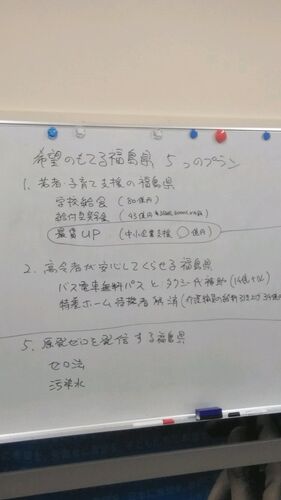 希望のもてる福島県 5つのプラン
1. 若者・子育て支援の福島県
学校給食 (80億円)
給付型奨学金 (45億円
最賃UP (中小企業支援 ○億円)
2. 高令者が安心してくらせる福島県
バス電車無料パスとタクシー代補助 (14億
特養ホーム待機者解消 (介護職員の給料引き上げ
5. 原発ゼロを発信する福島県
ゼロ法
汚染水